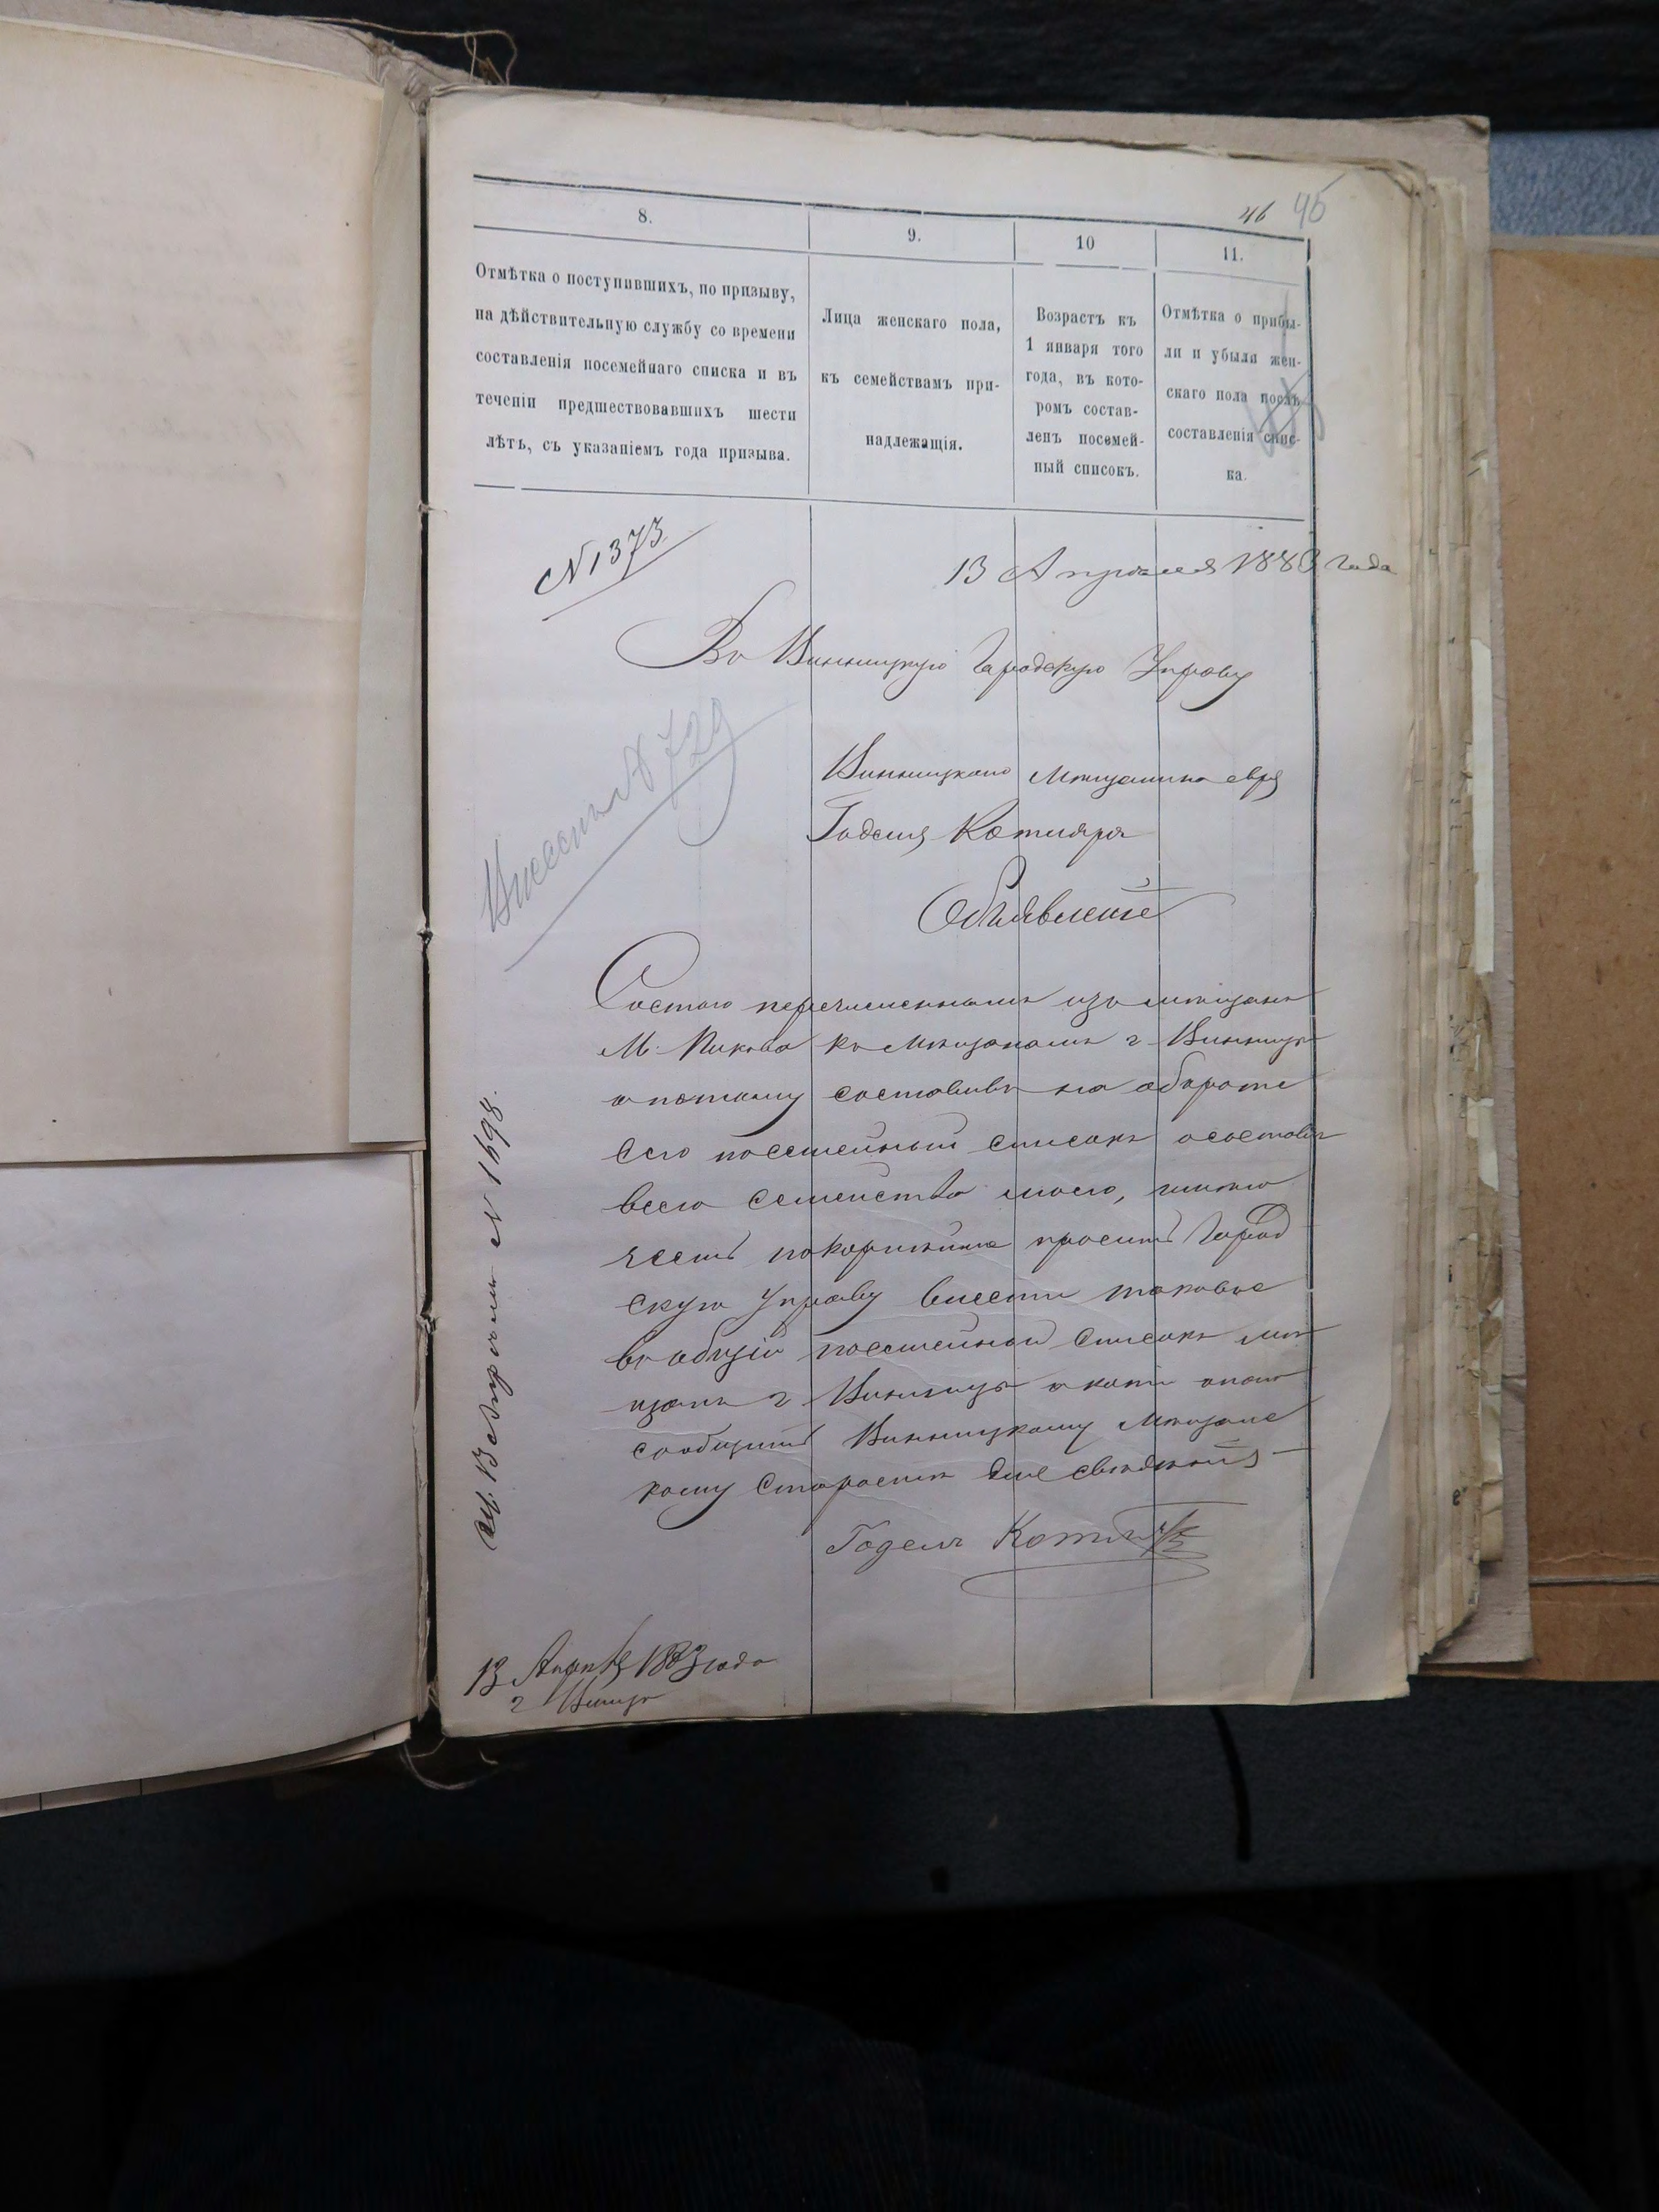 46 45
8.
9.
10
11.
Отмѣтка о поступившихъ, по призыву,
на дѣйствительную службу со времени
составленія посемейнаго списка и въ
теченіи предшествовавшихъ шести
лѣтъ, съ указаніемъ года призыва.
Лица женскаго пола,
къ семействамъ при-
надлежащія.
Возрастъ къ
1 января того
года, въ кото-
ромъ состав-
ленъ посемей-
ный списокъ.
Отмѣтка о прибы-
ли и убыли жен-
скаго пола послѣ
составленія спис-
ка.
N 1373
13 Апрѣля 1883 года
Въ Винницкую Городскую Управу
Внесенъ N 729
Винницкаго Мѣщанина евр
Годеля Котляра
Объявленіе
Состою перечисленнымъ изъ мѣщанъ
М. Пикова къ Мѣщанамъ г. Винницы
а потому составивъ на оборотѣ
сего посемейный списокъ о составѣ
всего семейства моего, имѣю
честь покорнѣйше просить Город
скую Управу внести таковое
въ общій посемейный списокъ мѣ
щанъ г. Винницы и
сообщить Винницкому Мѣщанс
кому Старостѣ для свѣденія
Годель Котляр
N 1698.
13 Апрѣля 1883 года
г Винница